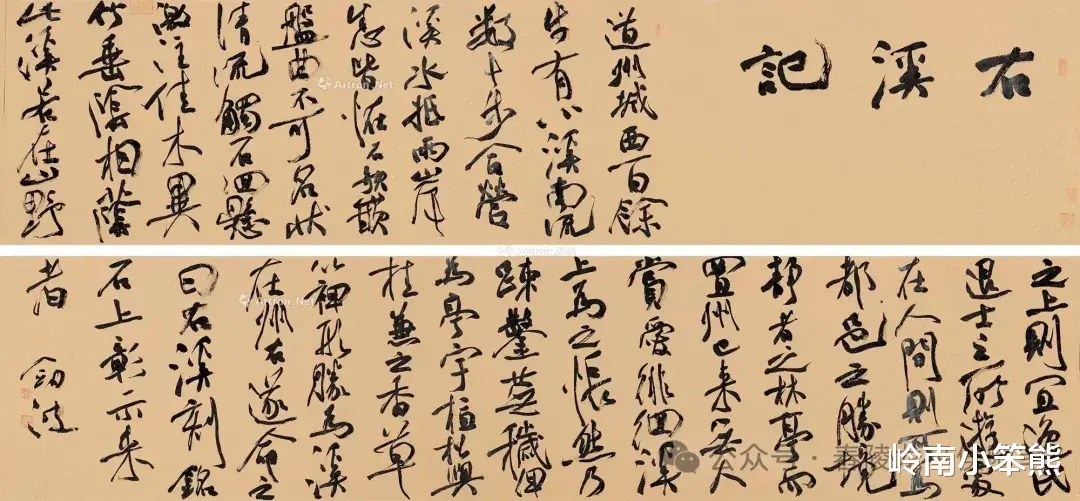 右溪記
道州城西百餘
步有小溪南流
數十步合營
溪水抵兩岸
悉皆怪石欹嵌
盤曲不可名狀
清流觸石洄懸
激注佳木異
竹垂陰相蔭
此溪若在山野
之上則宜逸民
退士之所遊處
在人間則可為
都邑之勝境
靜者之林亭而
置州已來無人
賞愛徘徊溪
上為之悵然乃
疎鑿蕪穢俾
為亭宇植松與
桂兼之香草
以裨形勝為溪
在州右遂命之
曰右溪刻銘
石上彰示來
者
Artron.Net
Artron.Net
公众号
岭南小笨熊